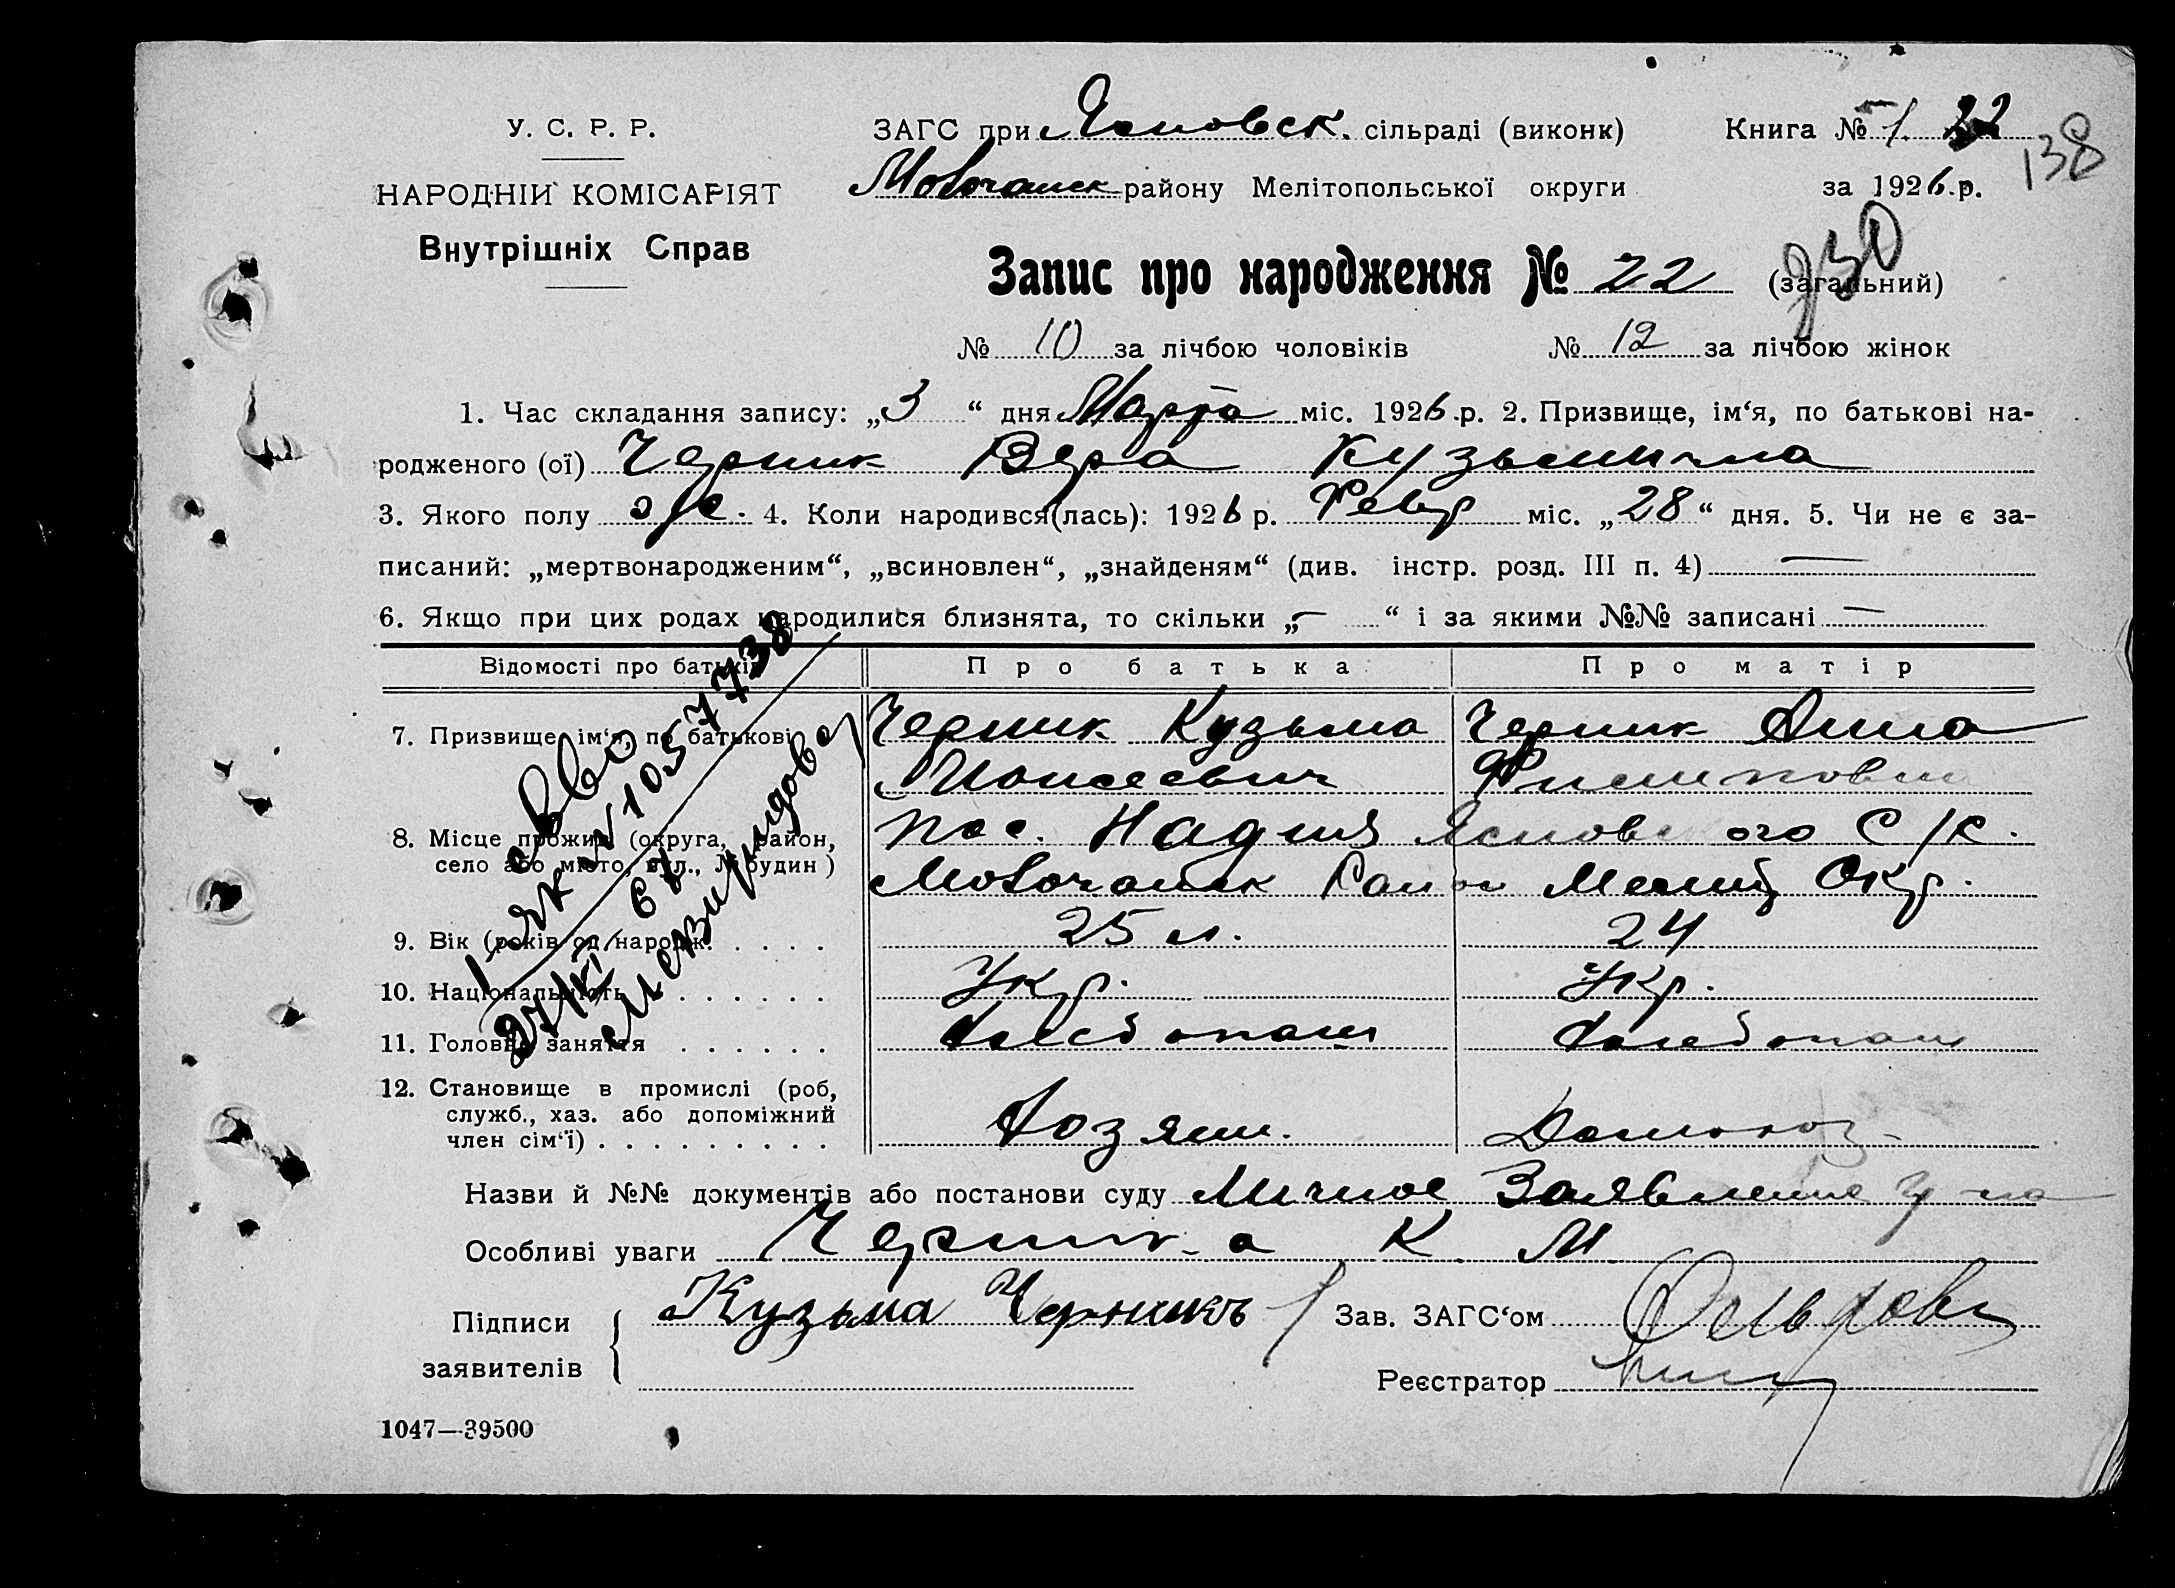 У. С. Р. Р.
НАРОДНІЙ КОМІСАРІЯТ
Внутрішніх Справ
ЗАГС при Ясновск. сільраді (виконк) Книга № 1. 22
138
Молочанск району Мелітопольської округи за 1926 р.
Запис про народження № 22 (загальний)
930
№ 10 за лічбою чоловіків № 12 за лічбою жінок
1. Час складання запису: „3“ дня Марта міс. 1926 р. 2. Призвище, ім‘я, по батькові на-
родженого (ої) Черник Вера Кузьминична
3. Якого полу ж. 4. Коли народився(лась): 1926 р. Февр міс. „28“ дня. 5. Чи не є за-
писаний: „мертвонародженим“, „всиновлен“, „знайденям“ (див. інстр. розд. III п. 4) —
6. Якщо при цих родах народилися близнята, то скільки „—“ і за якими №№ записані —
Відомості про батьків Про батька Про матір
7. Призвище, ім‘я, по батькові Черник Кузьма Черник Анна
Моисеевич Филиповна
8. Місце прожив. (округа, район, пос. Надия Ясновского С/К.
село або місто, вул., № будин) Молочанск Район Мелит Окр.
9. Вік (років од народж. 25 л. 24
10. Національність Укр. Укр.
11. Головне заняття Хлебопаш Хлебопаш
12. Становище в промислі (роб,
служб., хаз. або допоміжний
член сім‘ї) Хозяин. Домохоз-
Назви й №№ документів або постанови суду Личное Заявление гр-на
Особливі уваги Черника К. М.
Підписи Кузьма Черникъ Зав. ЗАГС‘ом
заявителів Реєстратор
1047—39500
с-во
I ЯК № 1057738
27/XI 67